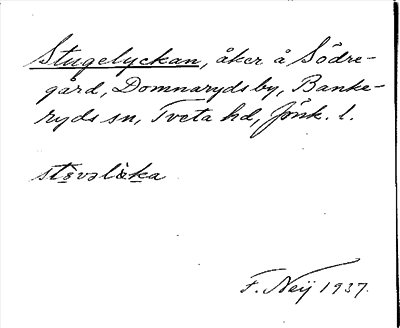 Stugelyckan, åker å Södre-
gård, Domnaryds by, Banke-
ryds sn, Tveta hd, Jönk. l.
stɵvəlɵka
F. Neij 1937.